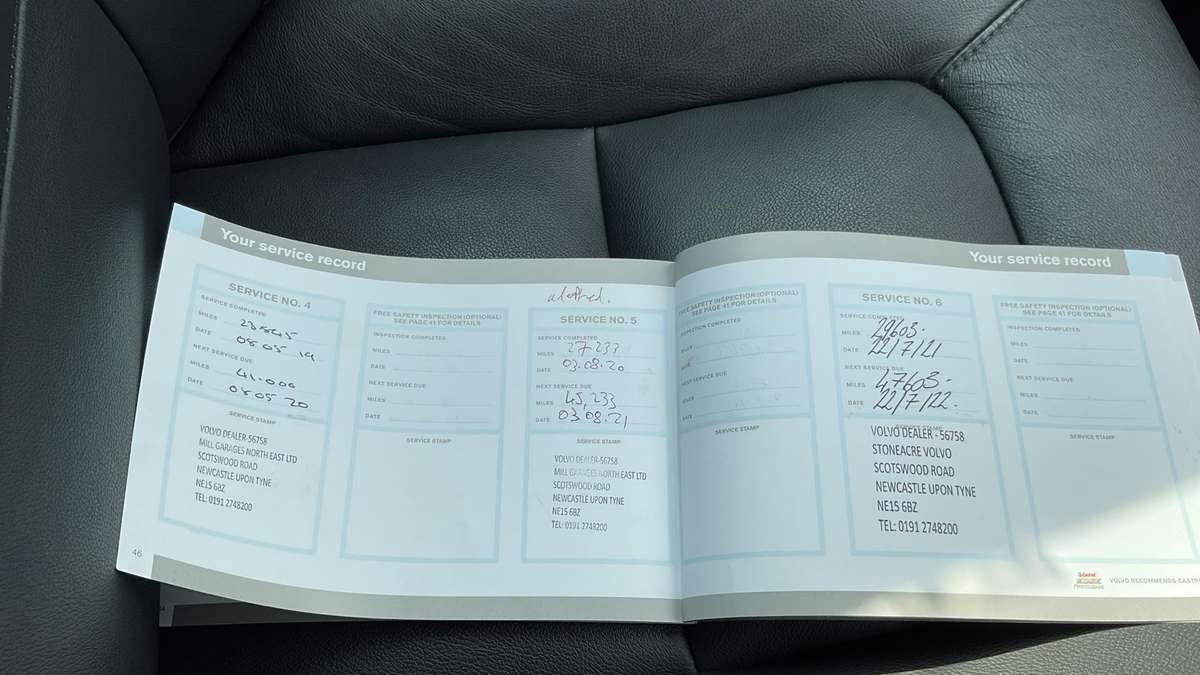 Your service record
SERVICE NO. 4
SERVICE COMPLETED
MILES 23545
DATE 08.05.19
NEXT SERVICE DUE
MILES 41.000
DATE 08.05 20
SERVICE STAMP
VOLVO DEALER-56758
MILL GARAGES NORTH EAST LTD
SCOTSWOOD ROAD
NEWCASTLE UPON TYNE
NE15 6BZ
TEL: 0191 2748200
46
FREE SAFETY INSPECTION (OPTIONAL)
SEE PAGE 41 FOR DETAILS
INSPECTION COMPLETED
MILES
DATE
NEXT SERVICE DUE
MILES
DATE
SERVICE STAMP
SERVICE NO. 5
SERVICE COMPLETED
MILES 27233
DATE 03.08.20
NEXT SERVICE DUE
MILES 45,233
DATE 03.08.21
SERVICE STAMP
VOLVO DEALER-56758
MILL GARAGES NORTH EAST LTD
SCOTSWOOD ROAD
NEWCASTLE UPON TYNE
NE15 6BZ
TEL: 0191 2748200
Your service record
FREE SAFETY INSPECTION (OPTIONAL)
SEE PAGE 41 FOR DETAILS
INSPECTION COMPLETED
MILES
DATE
NEXT SERVICE DUE
MILES
DATE
SERVICE STAMP
SERVICE NO. 6
SERVICE COMPLETED
MILES 29603.
DATE 22/7/21
NEXT SERVICE DUE
MILES 47603.
DATE 22/7/22.
SERVICE STAMP
VOLVO DEALER - 56758
STONEACRE VOLVO
SCOTSWOOD ROAD
NEWCASTLE UPON TYNE
NE15 6BZ
TEL: 0191 2748200
FREE SAFETY INSPECTION (OPTIONAL)
SEE PAGE 41 FOR DETAILS
INSPECTION COMPLETED
MILES
DATE
NEXT SERVICE DUE
MILES
DATE
SERVICE STAMP
Castrol
VOLVO RECOMMENDS